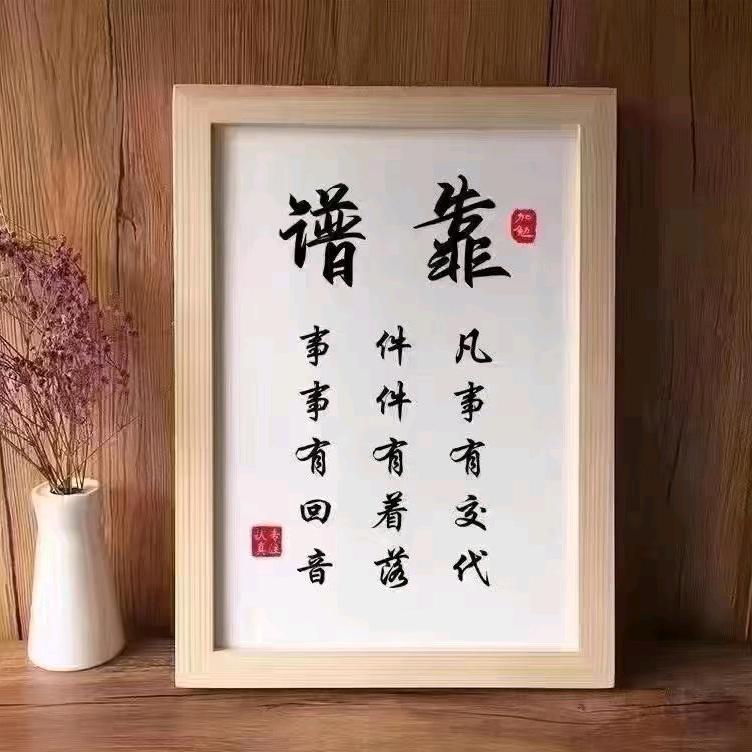 靠谱
加勉
凡事有交代
件件有着落
事事有回音
专注
认真